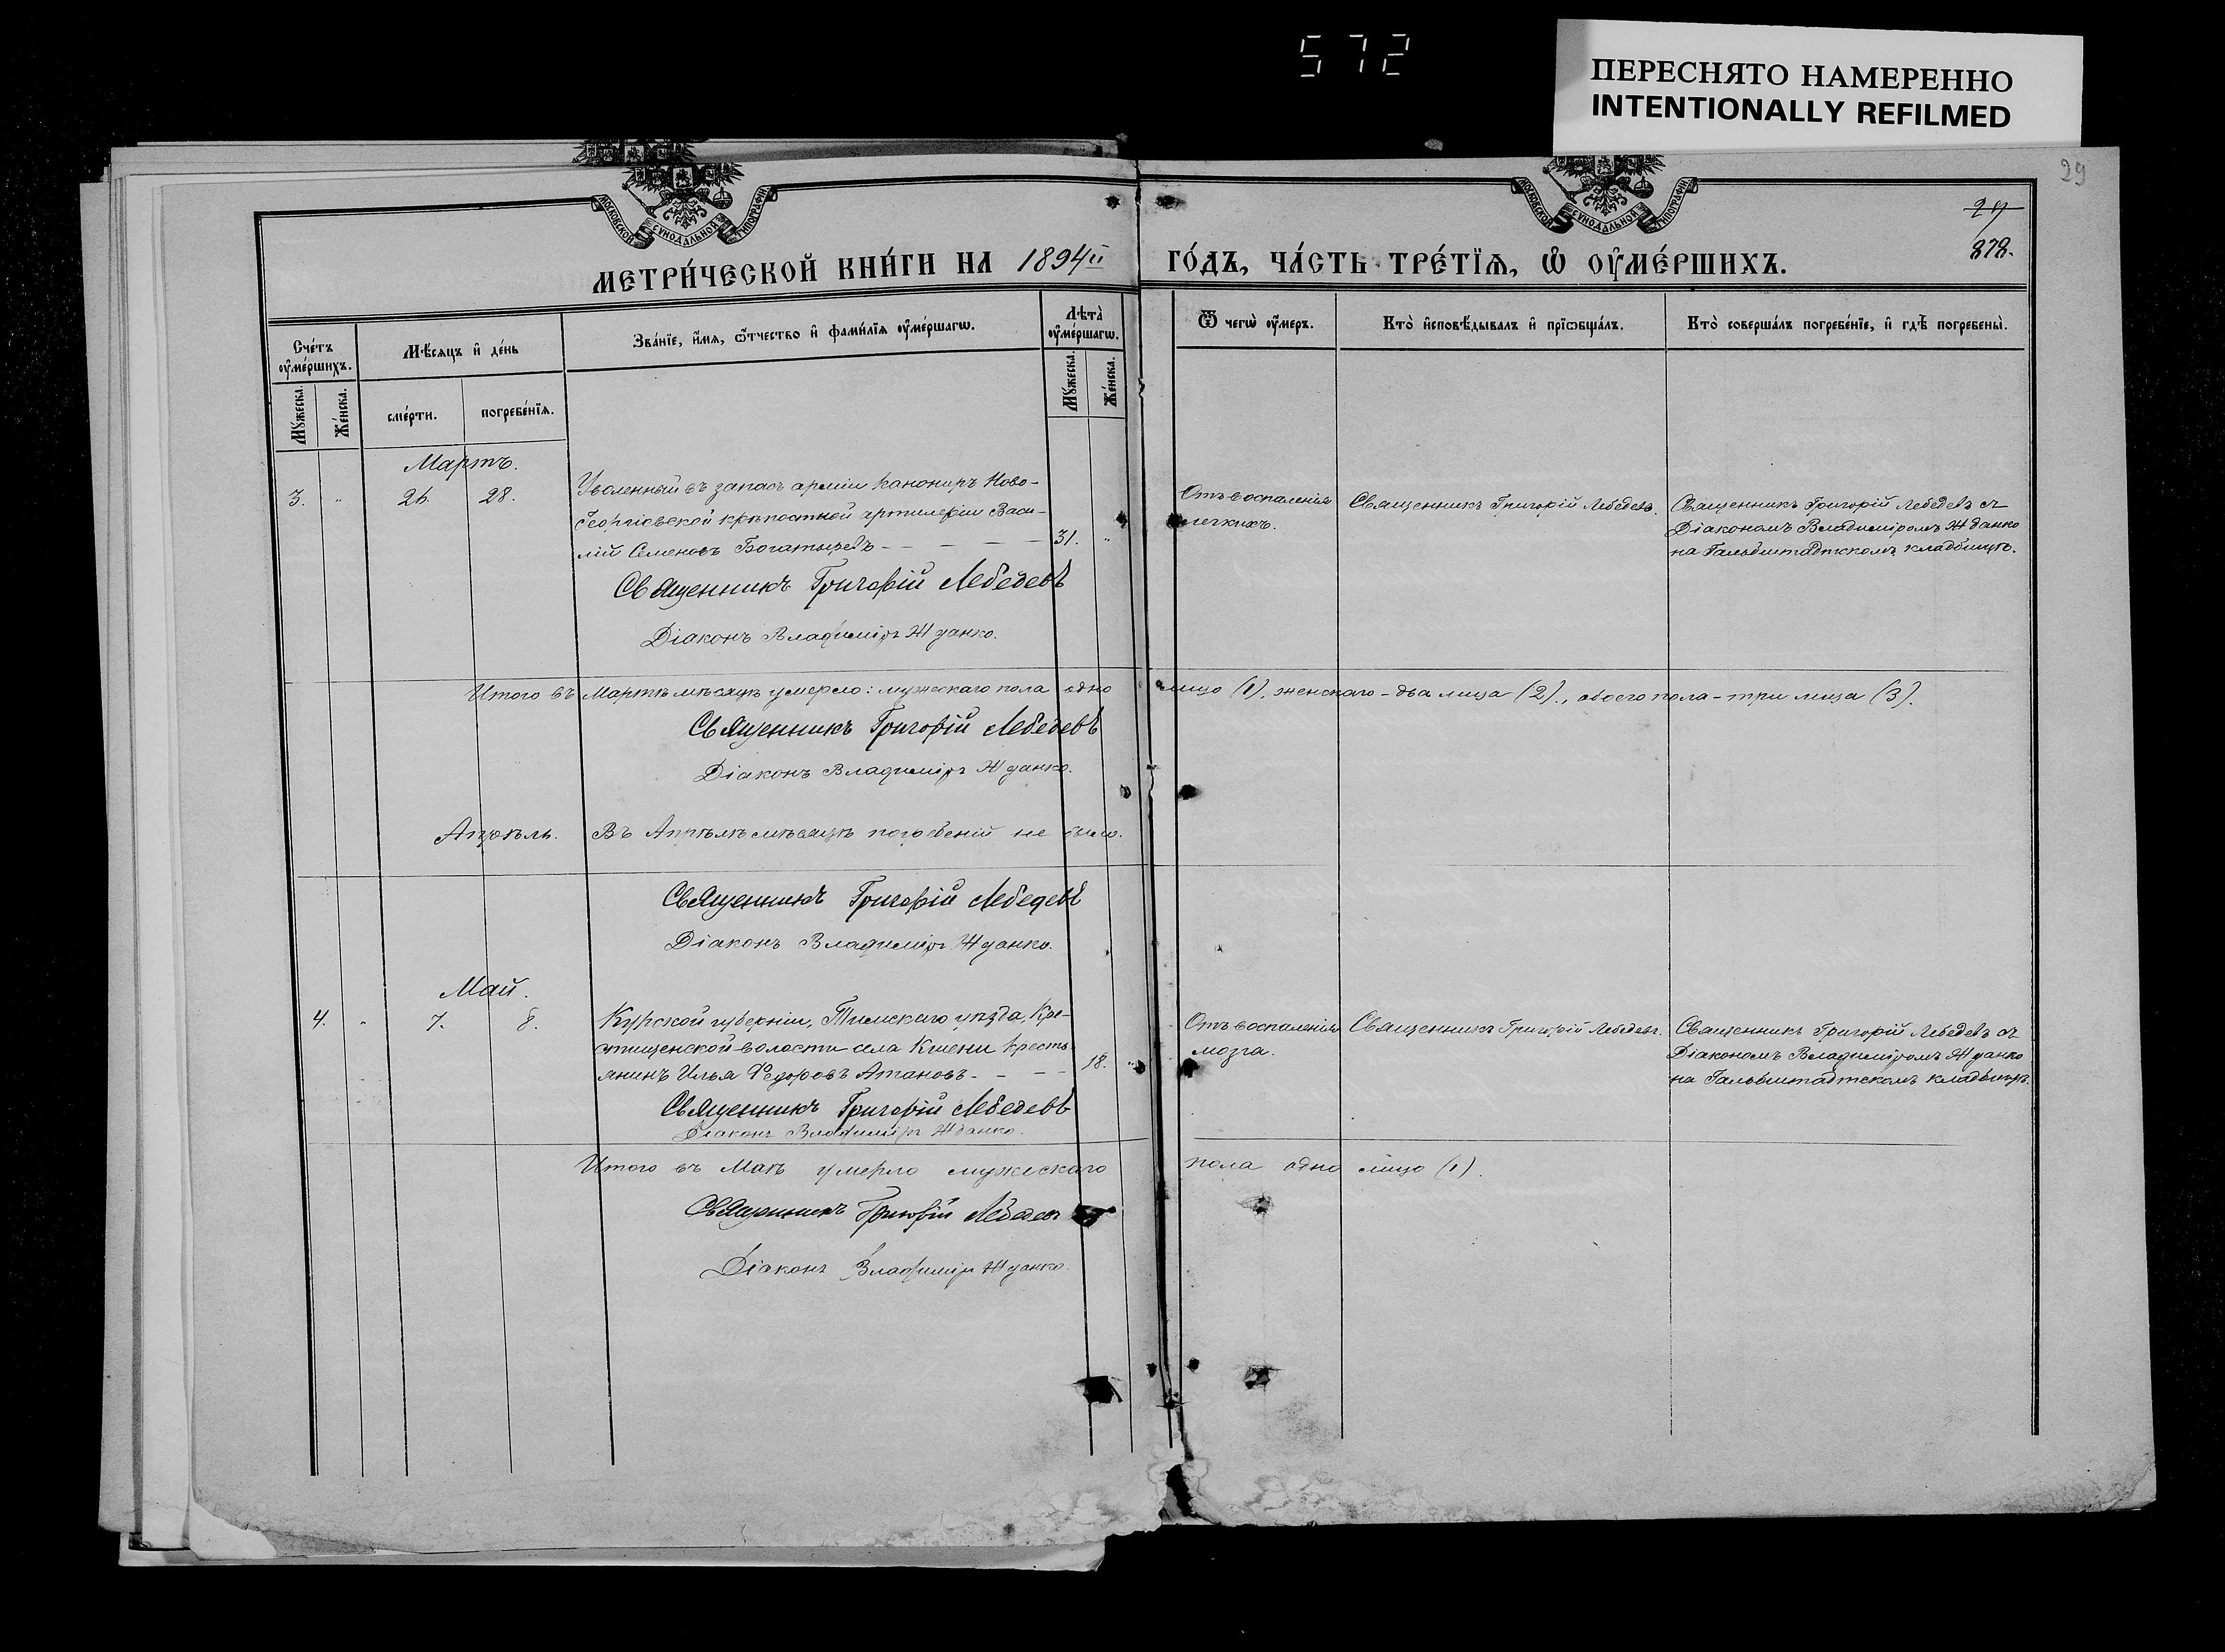 572
ПЕРЕСНЯТО НАМЕРЕННО
INTENTIONALLY REFILMED
29
МОСКОВСКОЙ СѴНОДАЛЬНОЙ ТИПОГРАФІИ
МОСКОВСКОЙ СѴНОДАЛЬНОЙ ТИПОГРАФІИ
29
878.
МЕТРИ́ЧЕСКОЙ КНИ́ГИ НА 1894й ГО́ДЪ, ЧА́СТЬ ТРЕ́ТЇѦ, Ѽ ОУМЕ́РШИХЪ.
Сче́тъ оуме́ршихъ.
Мѣ́сяцъ и де́нь
Зва́нїе, и́мя, ѻ́тчество и фами́лїя оуме́ршагѡ.
Лѣта̀ оуме́ршагѡ.
Ѿ чегѡ̀ оу́меръ.
Кто̀ исповѣ́дывалъ и прїѡбща́лъ.
Кто̀ соверша́лъ погребе́нїе, и гдѣ̀ погребены̀.
Мꙋ́жеска.
Же́нска.
сме́рти.
погребе́нїя.
Мꙋ́жеска.
Же́нска.
Мартъ.
3. " 26. 28. Уволенный въ запасъ арміи канониръ Ново-
Георгіевской крѣпостной артилеріи Васи-
лій Семеновъ Богатыревъ - - - - - 31. "
Отъ воспаленія
легкихъ.
Священникъ Григорій Лебедевъ.
Священникъ Григорій Лебедевъ съ
Діакономъ Владиміромъ Жданко
на Гальбштадтскомъ кладбищѣ.
Священникъ Григорій Лебедевъ
Діаконъ Владиміръ Жданко.
Итого въ Мартѣ мѣсяцѣ умерло: мужескаго пола одно лицо (1), женскаго - два лица (2)., обоего пола - три лица (3).
Священникъ Григорій Лебедевъ
Діаконъ Владиміръ Жданко.
Апрѣль. Въ Апрѣлѣ мѣсяцѣ погребеній не было.
Священникъ Григорій Лебедевъ
Діаконъ Владиміръ Жданко.
Май.
4. " 7. 8. Курской губерніи, Тимскаго уѣзда, Кре-
стищенской волости села Кшени кресть-
янинъ Илья Ѳедоровъ Атановъ - - - - 18. "
Отъ воспаленія
мозга.
Священникъ Григорій Лебедевъ.
Священникъ Григорій Лебедевъ съ
Діакономъ Владиміромъ Жданко
на Гальбштадтскомъ кладбищѣ.
Священникъ Григорій Лебедевъ
Діаконъ Владиміръ Жданко.
Итого въ Маѣ умерло мужескаго пола одно лицо (1).
Священникъ Григорій Лебедевъ
Діаконъ Владиміръ Жданко.